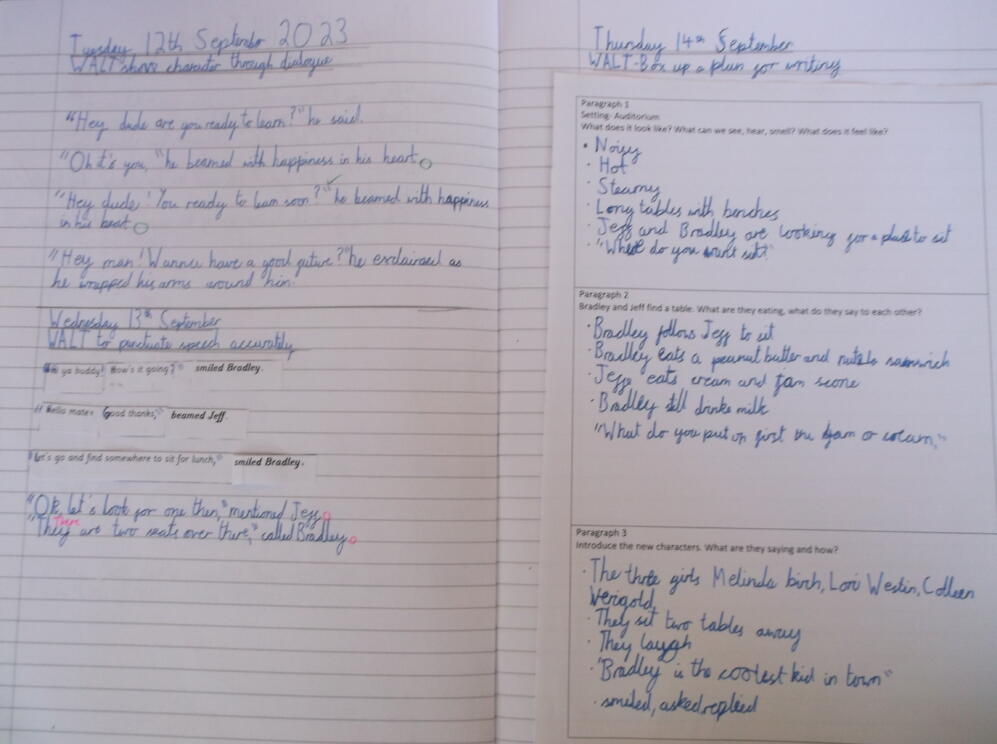 Tuesday 12th September 2023
WALT show character through dialogue
"Hey dude are you ready to learn?" he said.
"Oh it's you," he beamed with happiness in his heart.
"Hey dude! You ready to learn soon?" he beamed with happiness
in his heart
"Hey man! Wanna have a good future?" he exclaimed as
he wrapped his arms around him.
Wednesday 13th September
WALT to punctuate speech accurately
ya buddy! How's it going?" smiled Bradley.
"Hello mate. Good thanks," beamed Jeff.
"Let's go and find somewhere to sit for lunch," smiled Bradley.
"Ok, let's look for one then," mentioned Jeff.
There
"They are two seats over there," called Bradley.
Thursday 14th September
WALT-Box up a plan for writing
Paragraph 1
Setting- Auditorium
What does it look like? What can we see, hear, smell? What does it feel like?
• Noisy
• Hot
• Steamy
• Long tables with benches
• Jeff and Bradley are looking for a place to sit
• "Where do you sit?"
Paragraph 2
Bradley and Jeff find a table. What are they eating, what do they say to each other?
• Bradley follows Jeff to sit
• Bradley eats a peanut butter and
• Jeff eats cream and jam scone
• Bradley still drinks milk
"What do you put on first the jam or"
Paragraph 3
Introduce the new characters. What are they saying and how?
• The three girls Melinda birch, Lori Westin, Colleen
Verigold
• They sit two tables away
• They laugh
• "Bradley is the coolest kid in town"
• smiled, asked, replied